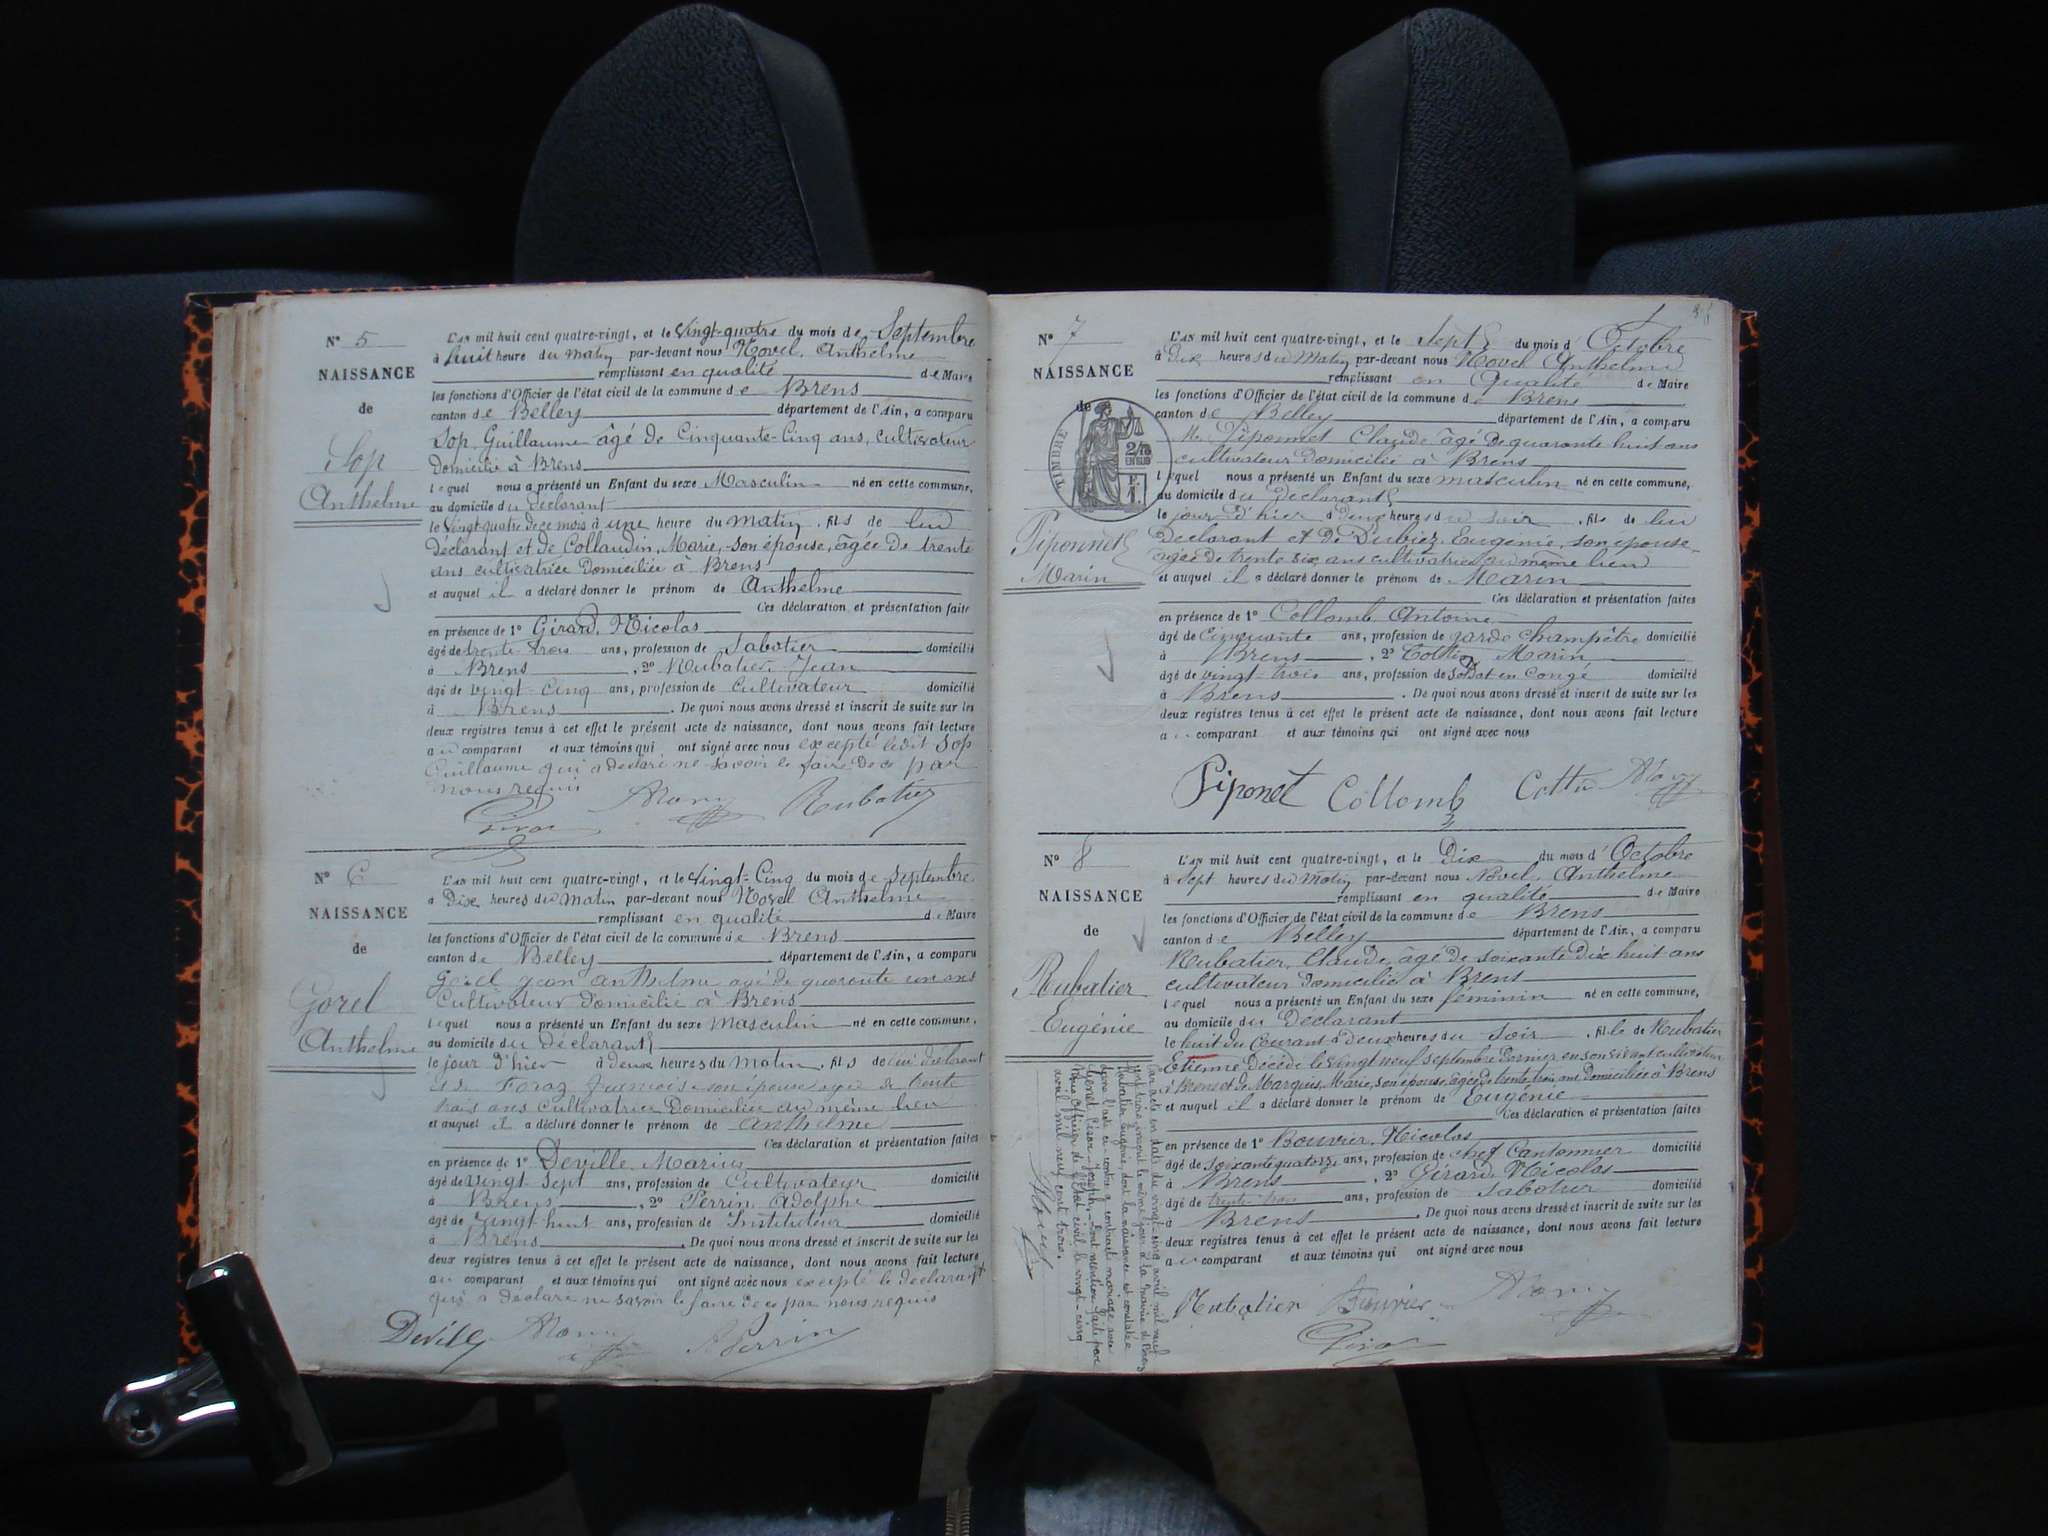 N° 5
NAISSANCE
de
Sop
Anthelme
L'AN mil huit cent quatre-vingt, et le vingt-quatre du mois de Septembre
à huit heure du matin par-devant nous Novel, Anthelme
remplissant en qualité de Maire
les fonctions d'Officier de l'état civil de la commune de Brens
canton de Belley département de l'Ain, a comparu
Sop, Guillaume âgé de Cinquante-Cinq ans, cultivateur
Domicilié à Brens
lequel nous a présenté un Enfant du sexe Masculin né en cette commune,
au domicile du Déclarant
le vingt-quatre de ce mois à une heure du matin, fils de lui
déclarant et de Collaudin, Marie, son épouse, âgée de trente
ans cultivatrice Domiciliée à Brens
et auquel il a déclaré donner le prénom de Anthelme
Ces déclaration et présentation faites
en présence de 1° Girard, Nicolas
âgé de trente-trois ans, profession de Sabotier domicilié
à Brens, 2° Rubatier, Jean
âgé de vingt-cinq ans, profession de Cultivateur domicilié
à Brens. De quoi nous avons dressé et inscrit de suite sur les
deux registres tenus à cet effet le présent acte de naissance, dont nous avons fait lecture
au comparant et aux témoins qui ont signé avec nous excepté ledit Sop
Guillaume qui a déclaré ne savoir le faire de ce par
nous requis
Rubatier
N° 6
NAISSANCE
de
Gorel
Anthelme
L'AN mil huit cent quatre-vingt, et le vingt-Cinq du mois de Septembre
à Dix heures du Matin par-devant nous Novel Anthelme
remplissant en qualité de Maire
les fonctions d'Officier de l'état civil de la commune de Brens
canton de Belley département de l'Ain, a comparu
Gorel Jean anthelme agé de quarante un ans
Cultivateur Domicilié à Brens
lequel nous a présenté un Enfant du sexe Masculin né en cette commune,
au domicile du déclarant
le jour d'hier à deux heures du Matin, fils de lui déclarant
et de Foraz son épouse agée de trente
trois ans cultivatrice Domiciliée au même lieu
et auquel il a déclaré donner le prénom de Anthelme
Ces déclaration et présentation faites
en présence de 1° Deville, Marius
âgé de vingt Sept ans, profession de Cultivateur domicilié
à Brens, 2° Perrin, Adolphe
âgé de vingt-huit ans, profession de Instituteur domicilié
à Brens. De quoi nous avons dressé et inscrit de suite sur les
deux registres tenus à cet effet le présent acte de naissance, dont nous avons fait lecture
au comparant et aux témoins qui ont signé avec nous excepté le déclarant
qui a déclaré ne savoir le faire de ce par nous requis
Deville APerrin
N° 7
NAISSANCE
de
TIMBRE
Piponnet
Marin
L'AN mil huit cent quatre-vingt, et le Sept du mois d'Octobre
à Dix heures du Matin par-devant nous Novel Anthelme
remplissant en Qualité de Maire
les fonctions d'Officier de l'état civil de la commune de Brens
canton de Belley département de l'Ain, a comparu
Piponnet Claude âgé de quarante huit ans
cultivateur Domicilié à Brens
lequel nous a présenté un Enfant du sexe masculin né en cette commune,
au domicile du déclarant
le jour d'hier à Deux heures du soir, fils de lui
Déclarant et de Dubiez, Eugénie, son épouse
agée de trente six ans cultivatrice au même lieu
et auquel il a déclaré donner le prénom de Marin
Ces déclaration et présentation faites
en présence de 1° Collomb, Antoine
âgé de Cinquante ans, profession de garde Champêtre domicilié
à Brens, 2° Cottin Marin
âgé de vingt-trois ans, profession de Soldat en Congé domicilié
à Brens. De quoi nous avons dressé et inscrit de suite sur les
deux registres tenus à cet effet le présent acte de naissance, dont nous avons fait lecture
au comparant et aux témoins qui ont signé avec nous
Piponet Collomb Cottin
N° 8
NAISSANCE
de
Rubatier
Eugénie
L'AN mil huit cent quatre-vingt, et le Dix du mois d'Octobre
à Sept heures du Matin par-devant nous Novel, Anthelme
remplissant en qualité de Maire
les fonctions d'Officier de l'état civil de la commune de Brens
canton de Belley département de l'Ain, a comparu
Rubatier, Claude, âgé de soixante Dix huit ans
cultivateur Domicilié à Brens
lequel nous a présenté un Enfant du sexe féminin né en cette commune,
au domicile du Déclarant
le huit du Courant à deux heures du Soir, fille de Rubatier
Etienne Décédé le vingt neuf septembre Dernier, en son vivant cultivateur
à Brens et de Marquis, Marie, son épouse, âgée de trente trois ans Domiciliée à Brens
et auquel il a déclaré donner le prénom de Eugénie
Ces déclaration et présentation faites
en présence de 1° Bouvier, Nicolas
âgé de Soixante quatorze ans, profession de chef Cantonnier domicilié
à Brens, 2° Girard, Nicolas
âgé de trente-trois ans, profession de Sabotier domicilié
à Brens. De quoi nous avons dressé et inscrit de suite sur les
deux registres tenus à cet effet le présent acte de naissance, dont nous avons fait lecture
au comparant et aux témoins qui ont signé avec nous
Rubatier Bouvier
Par acte en date du vingt-cinq avril mil neuf
cent trois, inscrit le même jour à la mairie de Brens
Rubatier Eugénie, dont la naissance est constatée
dans l'acte ci-contre a contracté mariage avec
César-Joseph. Dont mention faite par
Nous Officier de l'Etat civil le vingt-cinq
avril mil neuf cent trois.